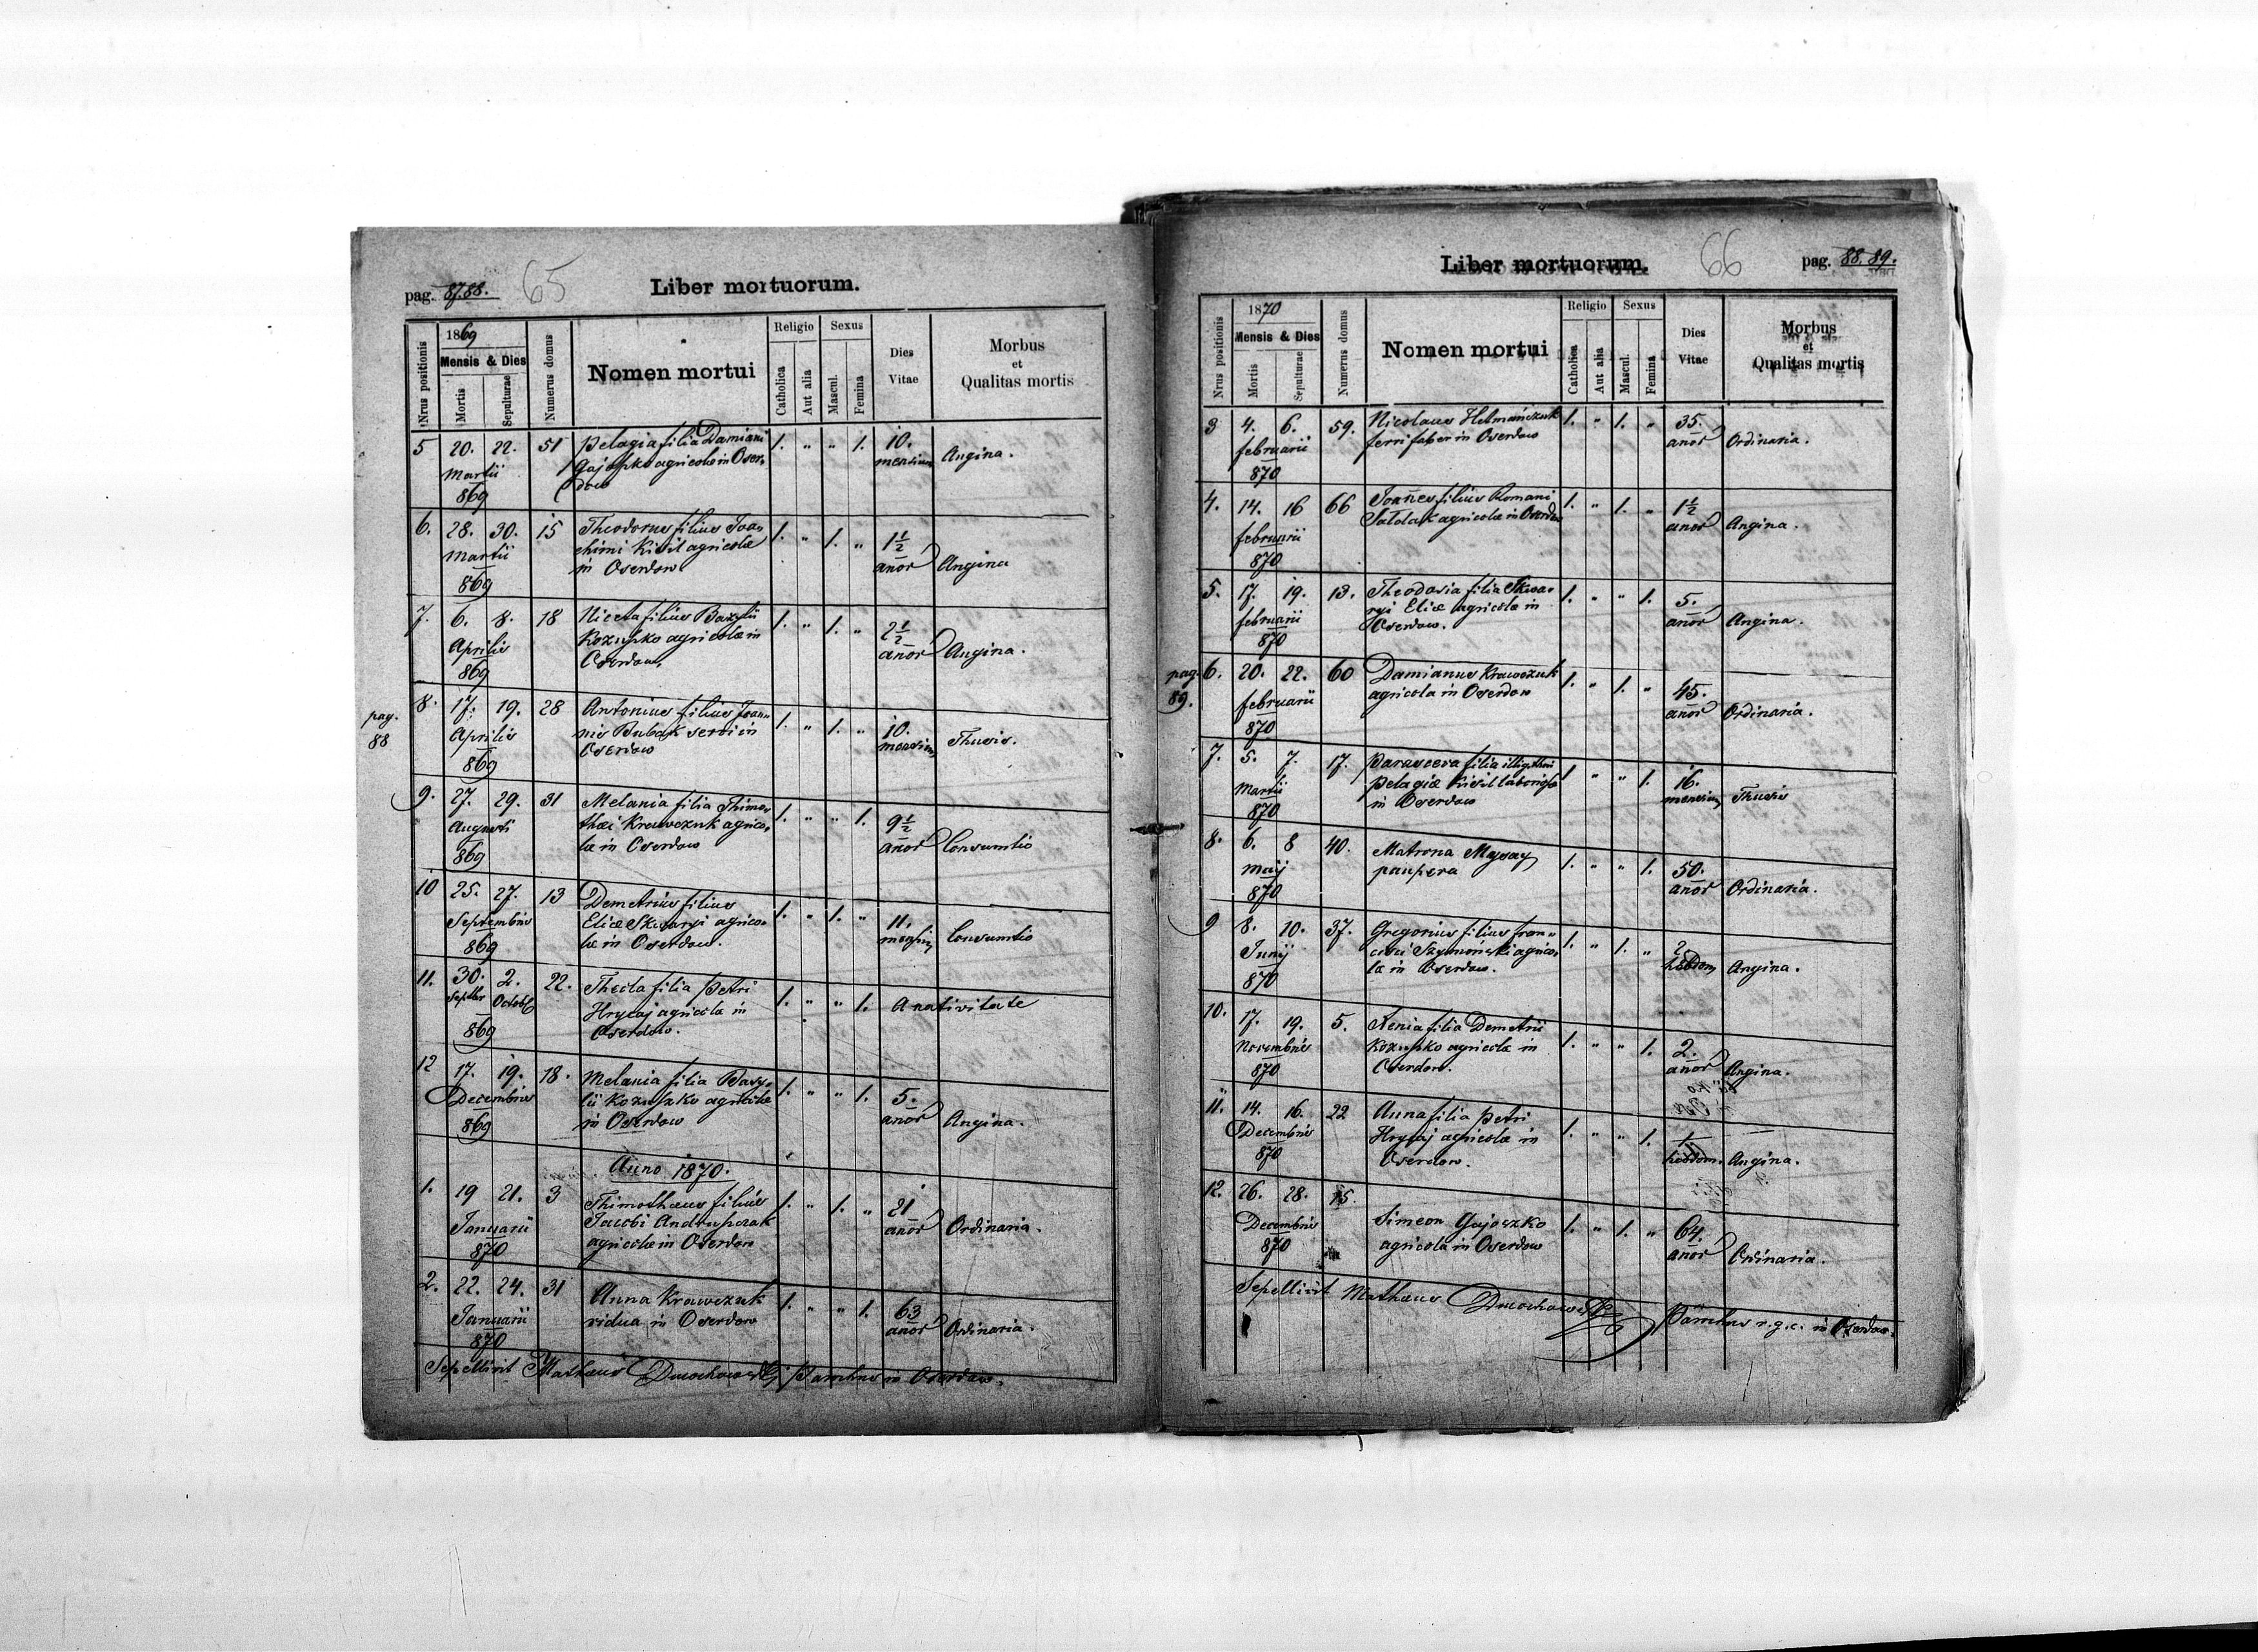 pag. 87.88. 65 Liber mortuorum.
Nrus positionis 1869 Mensis & Dies Mortis Sepulturae Numerus domus Nomen mortui Religio Catholica Aut alia Sexus Mascul. Femina Dies Vitae Morbus et Qualitas mortis
5 20. 22. 51 Pelagia filia Damiani 1. " " 1. 10.
Martii Gajoszko agricolae in Oser= mensium Angina.
869 dow
6. 28. 30. 15 Theodorus filius Joa=
Martii chimi Kisil agricolae 1. " 1. " 1½
869 in Oserdow anor Angina
7. 6. 8. 18 Niceta filius Bazylii 1. " 1. " 2½
Aprilis Kozuszko agricolae in anor Angina.
869 Oserdow
pag. 88
8. 17. 19. 28 Antonius filius Joan=
Aprilis nis Bubak servi in 1. " 1. " 10.
869 Oserdow mensium Thusis.
9. 27. 29. 31 Melania filia Thimo=
Augusti thei Krawczuk agrico= 1. " " 1. 9½
869 lae in Oserdow anor Consumtio
10 25. 27. 13 Demetrius filius
Septembris Eliae Skwaryi agrico= 1. " 1. " 11.
869 lae in Oserdow. Consumtio
11. 30. 2. 22. Thecla filia Petri
Septbr Octobr Hrycaj agricolae in 1. " " 1. A nativitate
869 Oserdow.
12 17. 19. 18. Melania filia Basy=
Decembris lii Kozuszko agricolae 1. " " 1. 5.
869 in Oserdow anor Angina.
Anno 1870.
1. 19 21. 3 Thimotheus filius 1. " 1. " 21
Januarii Jacobi Andruszczak anor Ordinaria.
870 agricolae in Oserdow
2. 22. 24. 31 Anna Krawczuk 1. " " 1. 63
Januarii vidua in Oserdow anor Ordinaria.
870
Sepellivit Mathaeus Dmochowski Parochus in Oserdow.
Liber mortuorum. 66 pag. 88.89.
Nrus positionis 1870 Mensis & Dies Mortis Sepulturae Numerus domus Nomen mortui Religio Catholica Aut alia Sexus Mascul. Femina Dies Vitae Morbus et Qualitas mortis
3 4. 6. 59. Nicolaus Helmańczuk 1. " 1. " 35.
februarii ferri faber in Oserdow anor Ordinaria.
870
4. 14. 16 66 Joannes filius Romani 1. " 1. " 1½
februarii agricolae in Oserdow anor Angina.
870
5. 17. 19. 13. Theodosia filia Skwa=
februarii ryi Eliae agricolae in 1. " " 1. 5.
870 Oserdow. anor Angina.
pag. 89.
6. 20. 22. 60 Damianus Krawczuk 1. " 1. " 45.
februarii agricola in Oserdow anor Ordinaria.
870
7. 5. 7. 17. Parasceva filia illigithmi
Martii Pelagiae Kisil 1. " " 1. 16.
870 in Oserdow mensium Thusis
8. 6. 8 40. Matrona 1. " " 1. 50.
Maij paupera anor Ordinaria.
870
9 8. 10. 37. Gregorius filius Fran=
Junij cisci Szymoński agrico= 1. " 1. " 2
870 lae in Oserdow. hebdom Angina.
10. 17. 19. 5. Xenia filia Demetrii
Novembris Kozuszko agricolae in 1. " " 1. 2.
870 Oserdow. anor Angina.
11. 14. 16. 22 Anna filia Petri
Decembris Hrycaj agricolae in 1. " " 1.
870 Oserdow. hebdom. Angina.
12. 26. 28. 15. Simeon Gajoszko 1. " 1. " 64.
Decembris agricola in Oserdow anor Ordinaria.
870
Sepellivit Mathaeus Dmochowski Parochus r.g.c. in Oserdow.